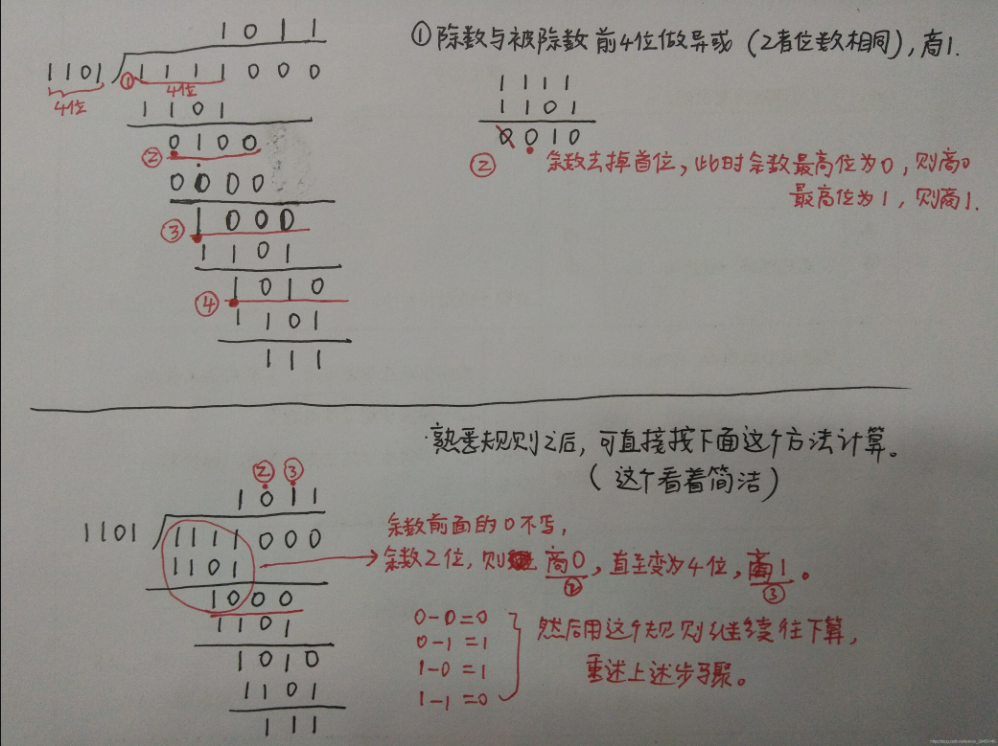 1 0 1 1
1101 1 1 1 1 0 0 0
① 4位
4位
1 1 0 1
② 0 1 0 0
0 0 0 0
③ 1 0 0 0
1 1 0 1
④ 1 0 1 0
1 1 0 1
1 1 1
① 除数与被除数前4位做异或（2者位数相同），商1.
1 1 1 1
1 1 0 1
0 0 1 0
② 余数去掉首位，此时余数最高位为0，则商0
最高位为1，则商1.
熟悉规则之后，可直接按下面这个方法计算。
（这个看着简洁）
② ③
1 0 1 1
1101 1 1 1 1 0 0 0
1 1 0 1
1 0 0 0
1 1 0 1
1 0 1 0
1 1 0 1
1 1 1
余数前面的0不写，
余数2位，则商0，直至变为4位，商1。
② ③
0-0=0
0-1=1
1-0=1
1-1=0
然后用这个规则继续往下算，
重述上述步骤。